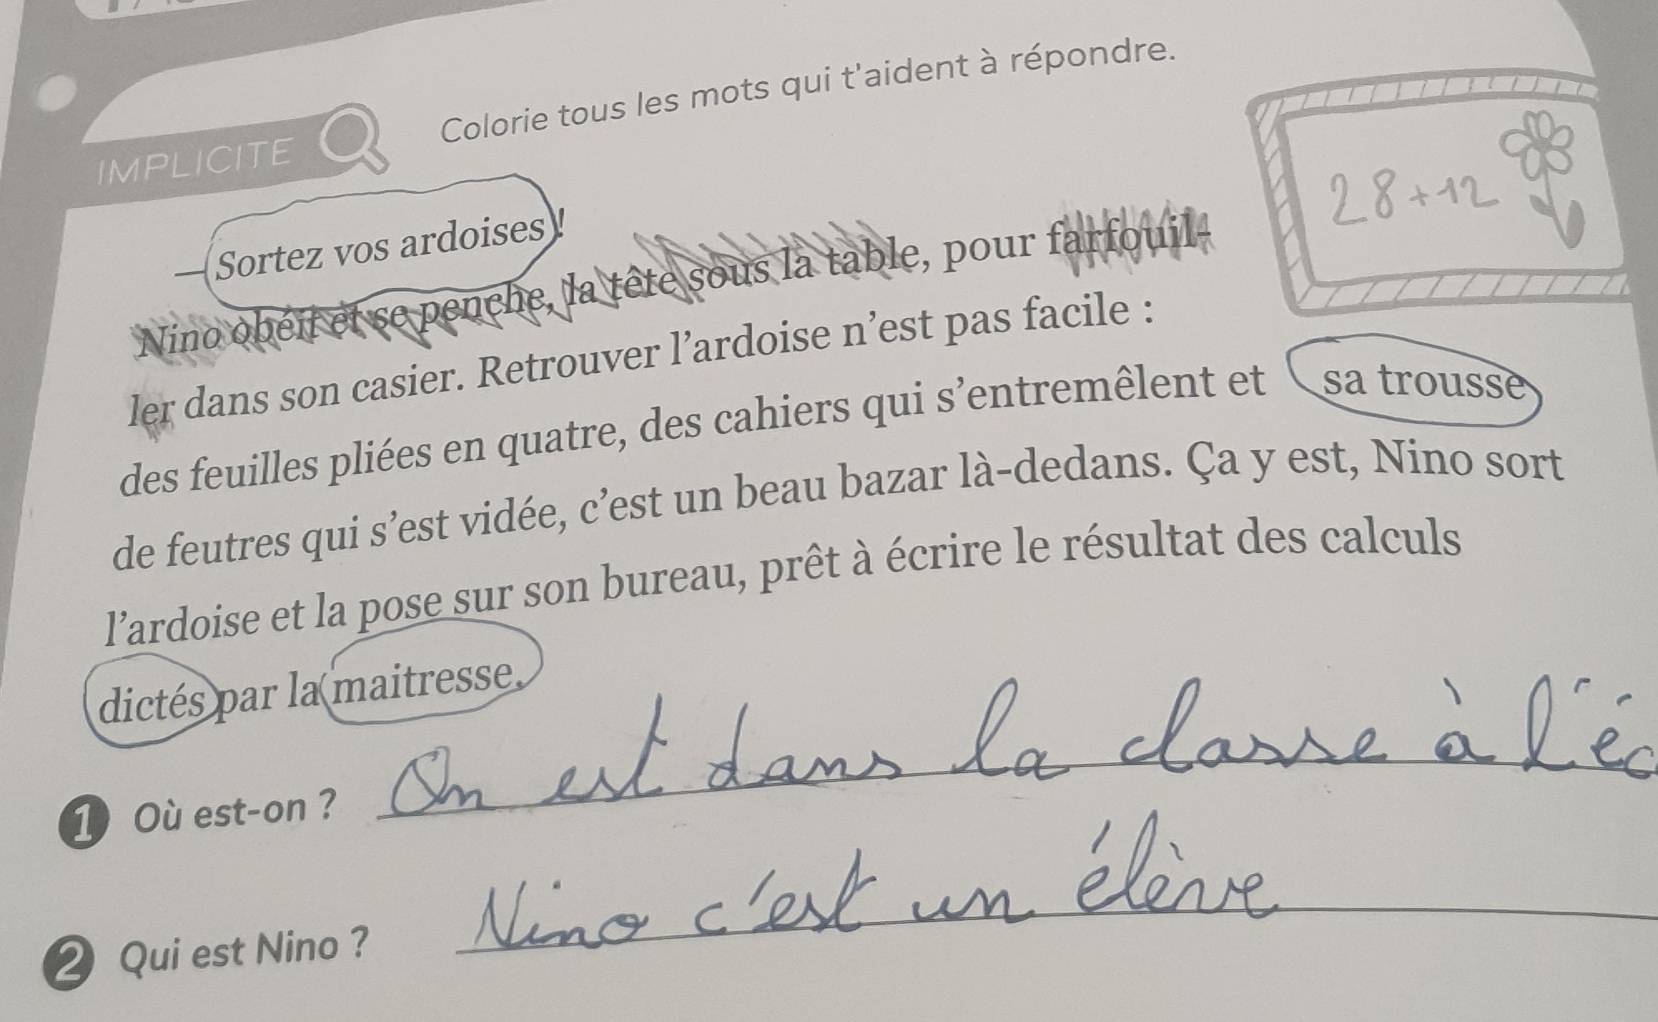 Colorie tous les mots qui t'aident à répondre.
IMPLICITE
28+12
— Sortez vos ardoises !
Nino obéit et se penche, la tête sous la table, pour farfouil-
ler dans son casier. Retrouver l'ardoise n'est pas facile :
des feuilles pliées en quatre, des cahiers qui s'entremêlent et sa trousse
de feutres qui s'est vidée, c'est un beau bazar là-dedans. Ça y est, Nino sort
l'ardoise et la pose sur son bureau, prêt à écrire le résultat des calculs
dictés par la maitresse.
1 Où est-on ? On est dans la classe à l'éc
2 Qui est Nino ? Nino c'est un élève